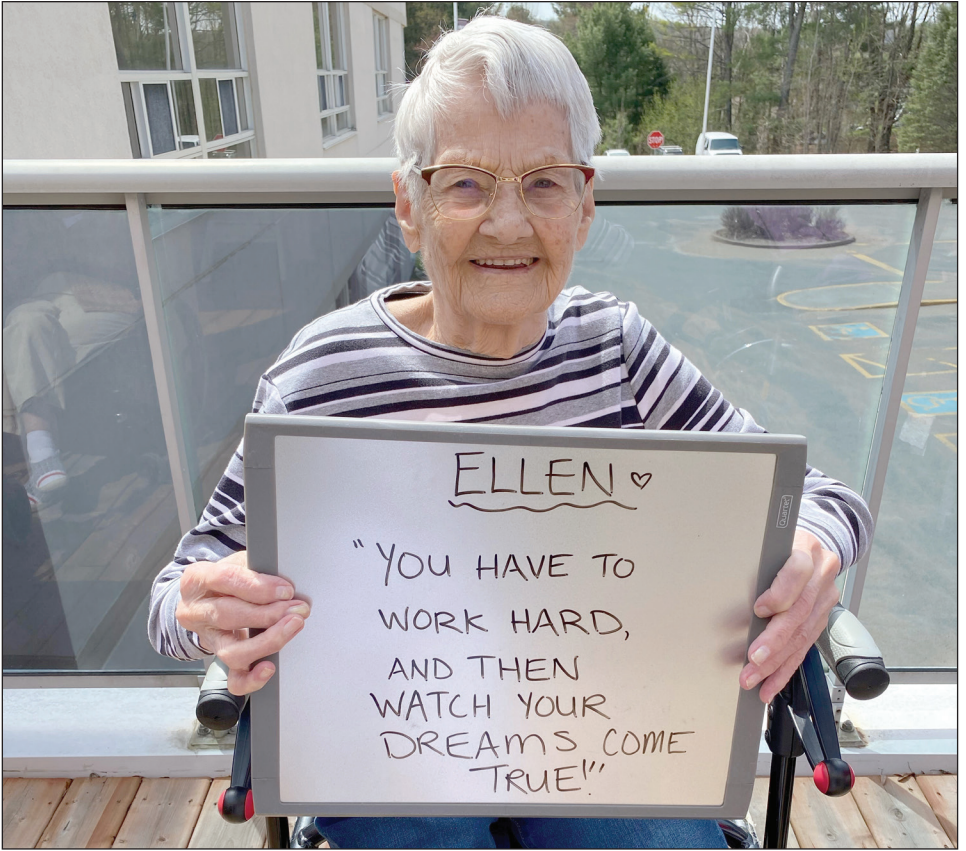 STOP
ELLEN ♡
"YOU HAVE TO
WORK HARD,
AND THEN
WATCH YOUR
DREAMS COME
TRUE!"
Quartet